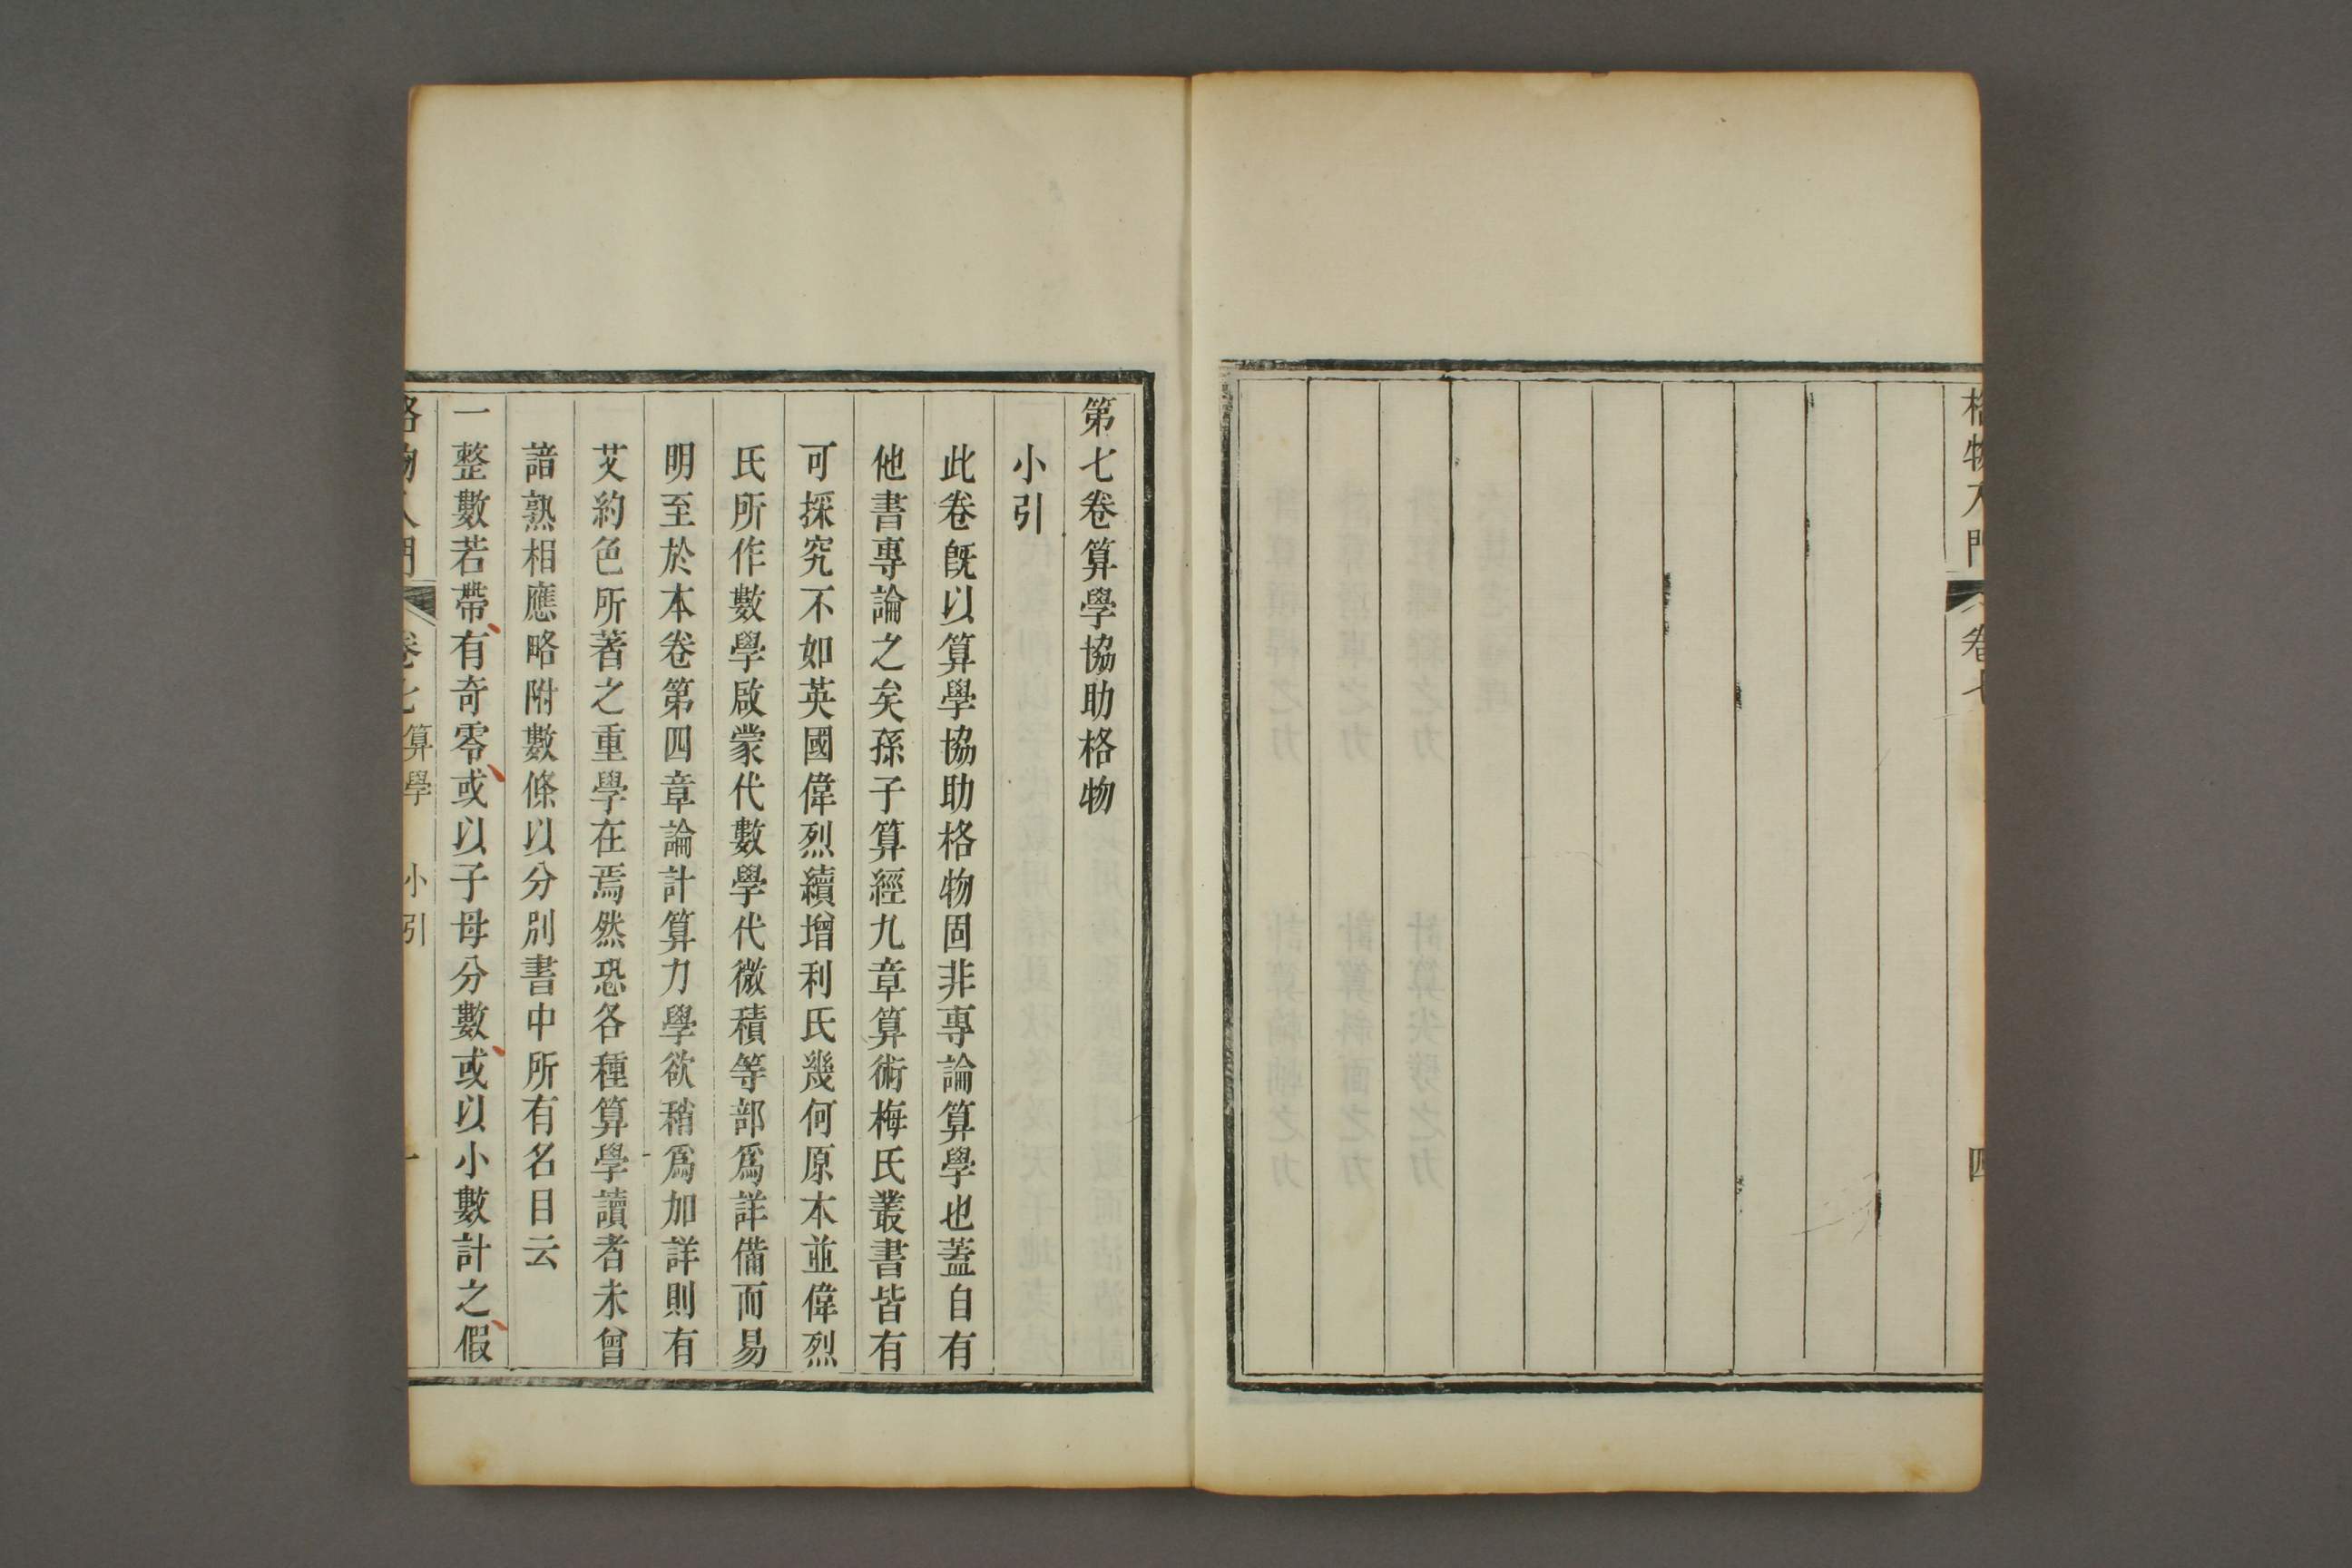 格物入門 卷七 四
第七卷算學協助格物
小引
此卷旣以算學協助格物固非專論算學也蓋自有
他書專論之矣孫子算經九章算術梅氏叢書皆有
可採究不如英國偉烈續增利氏幾何原本並偉烈
氏所作數學啟蒙代數學代微積等部爲詳備而易
明至於本卷第四章論計算力學欲稍爲加詳則有
艾約色所著之重學在焉然恐各種算學讀者未曾
諳熟相應略附數條以分別書中所有名目云
一整數若帶有奇零或以子母分數或以小數計之假
格物入門 卷七 算學 小引 一